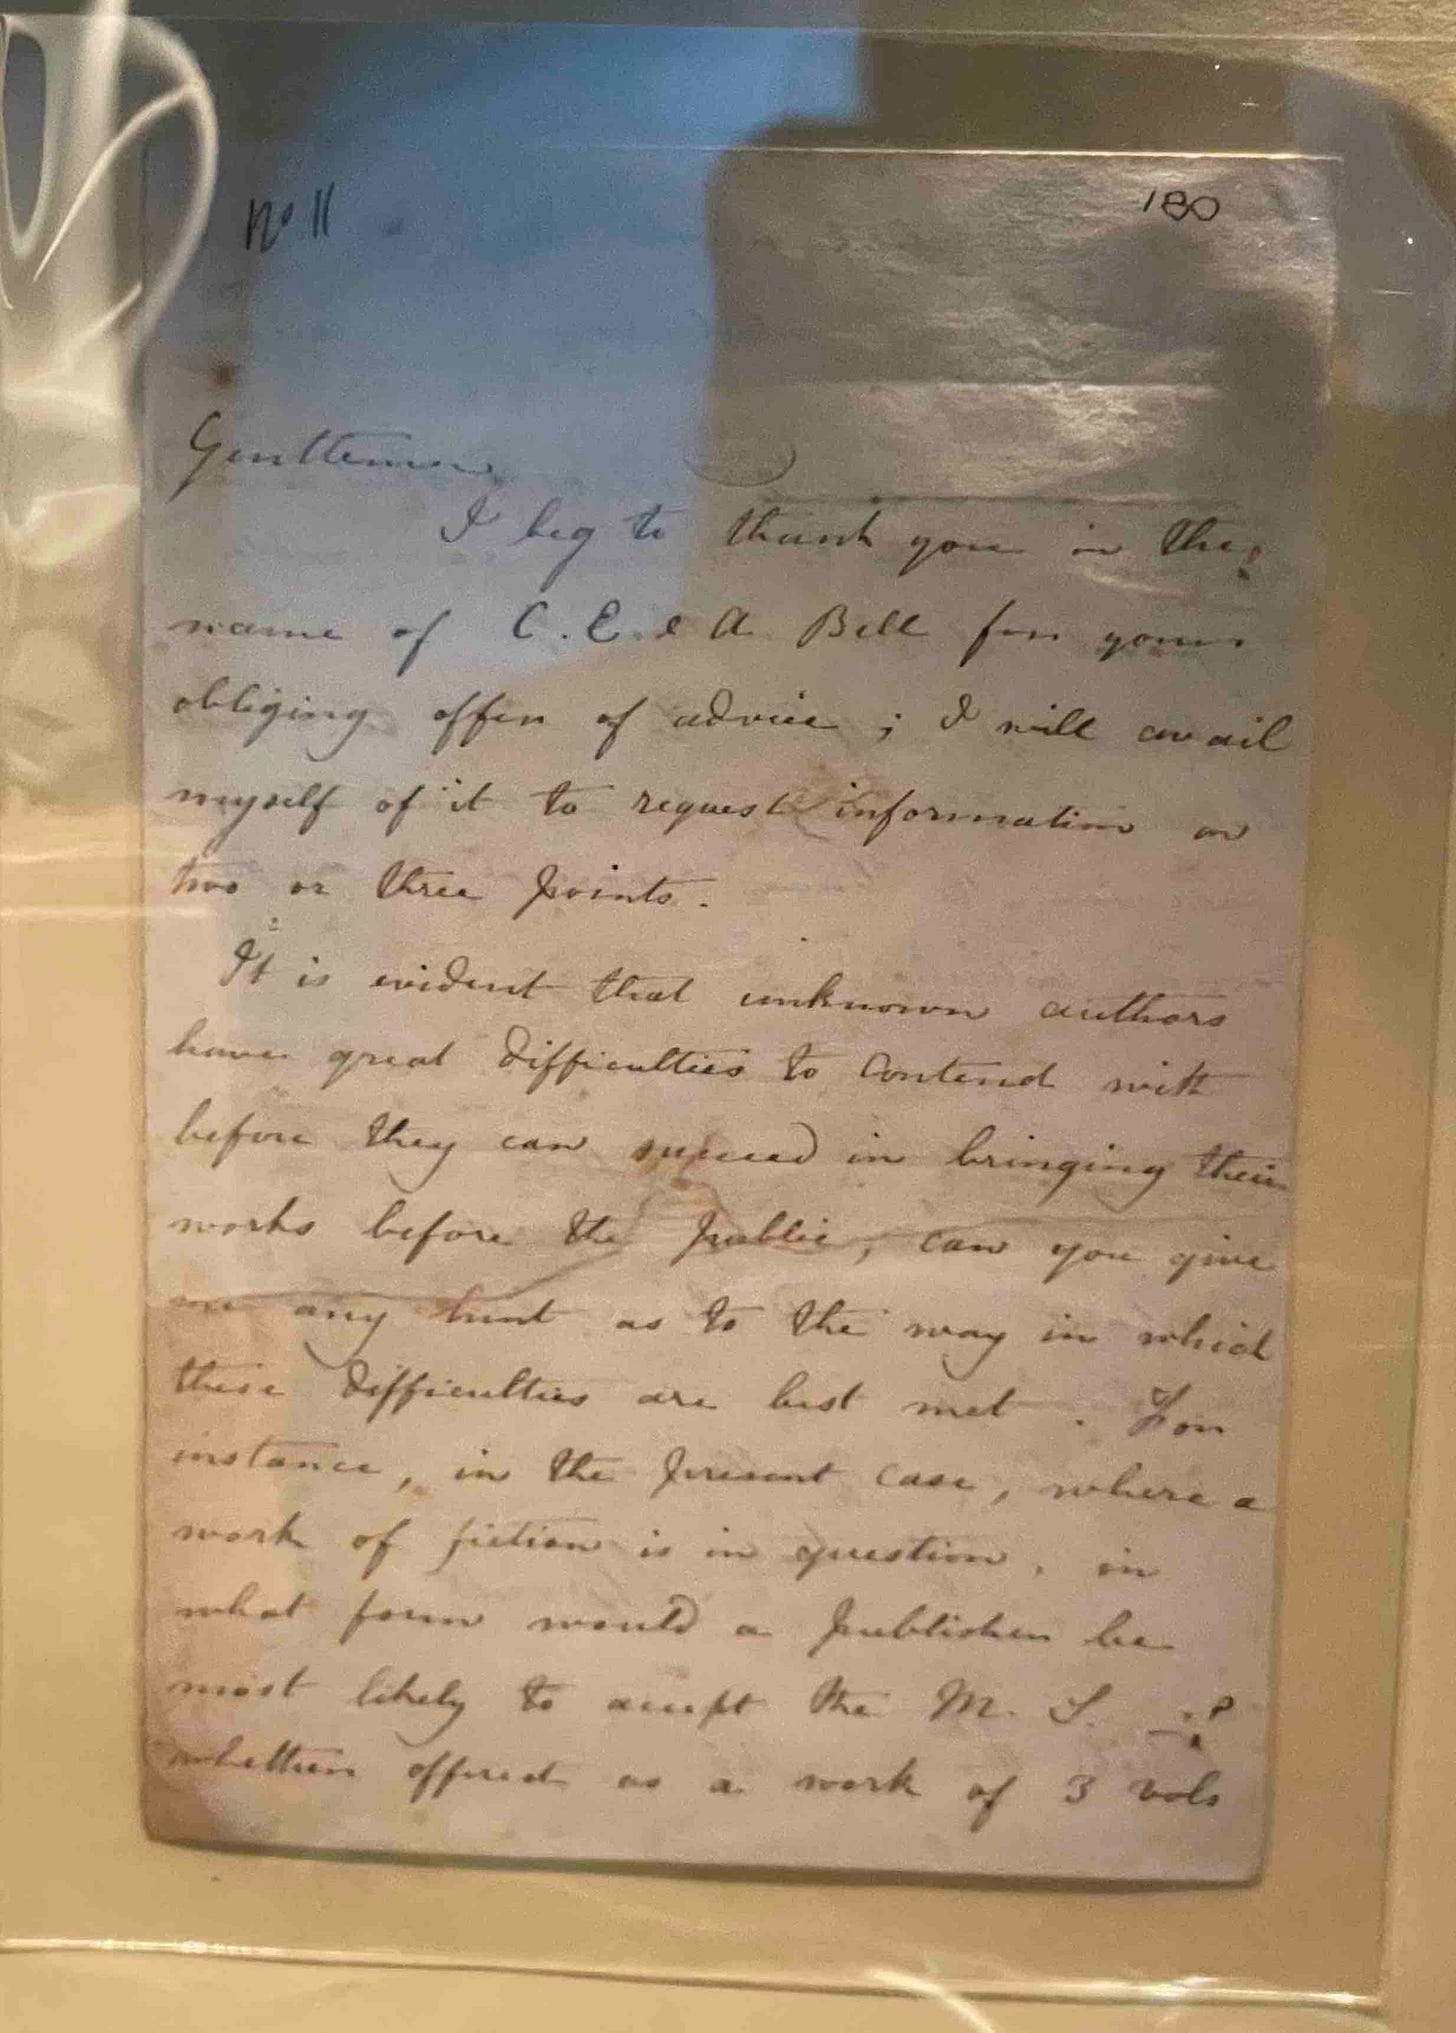 No 11
180
Gentlemen
I beg to thank you in the
name of C. E. & A Bell for your
obliging offer of advice ; I will avail
myself of it to request information on
two or three points.
It is evident that unknown authors
have great difficulties to contend with
before they can succeed in bringing their
works before the public, can you give
me any hint as to the way in which
these difficulties are best met. For
instance, in the present case, where a
work of fiction is in question, in
what form would a publisher be
most likely to accept the M. S. _?
whether offered as a work of 3 vols